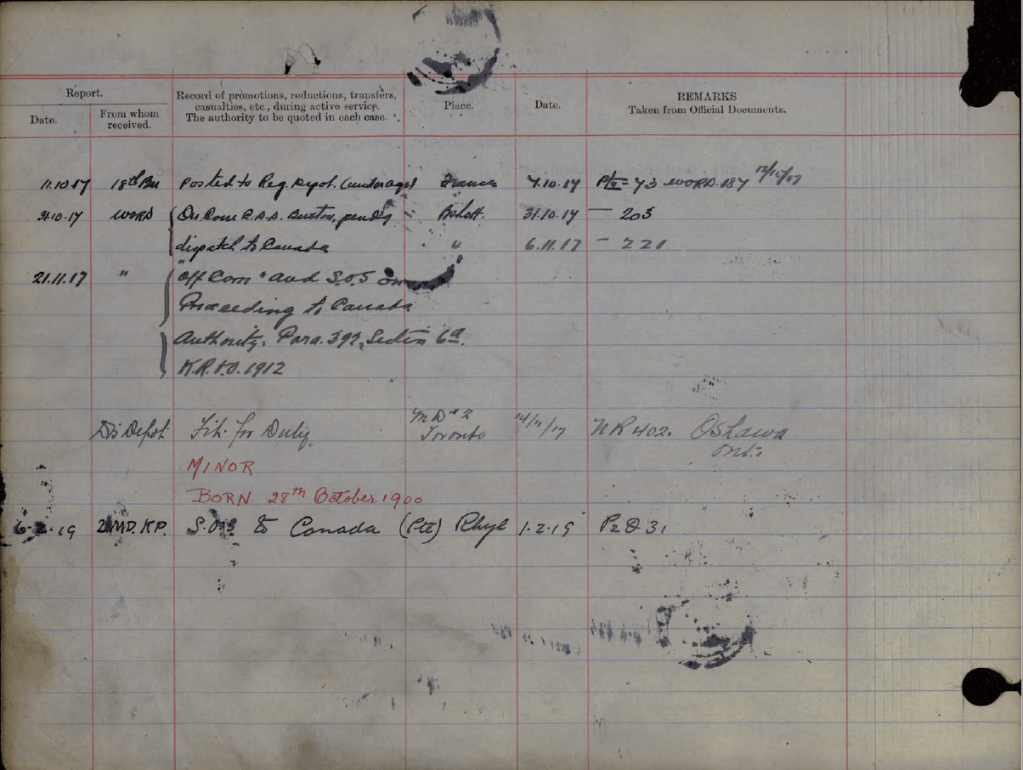 Report.
Record of promotions, reductions, transfers, casualties, etc., during active service. The authority to be quoted in each case.
Place.
Date.
REMARKS
Taken from Official Documents.
Date.
From whom received.
11.10.17 18th Bn Posted to Reg. Depot. (underage) France 7.10.17 Pt II = 73 WORD. 187 12/10/17
31.10.17 WORD On Com C.D.D. Buxton, pend'g 31.10.17 — 203
dispatch to Canada " 6.11.17 — 220
21.11.17 " "Off Com" and S.O.S on
Proceeding to Canada
Authority. Para. 392, Section 6a.
K.R.&O. 1912
Dis Depot Fit. for Duty. M D #2 Toronto 14/11/17 NR 402. Oshawa Ont.
MINOR
BORN 28th October 1900
6-2-19 2 MD. K.P. S.O.S to Canada (Pte) Rhyl 1.2.19 P2 O 31